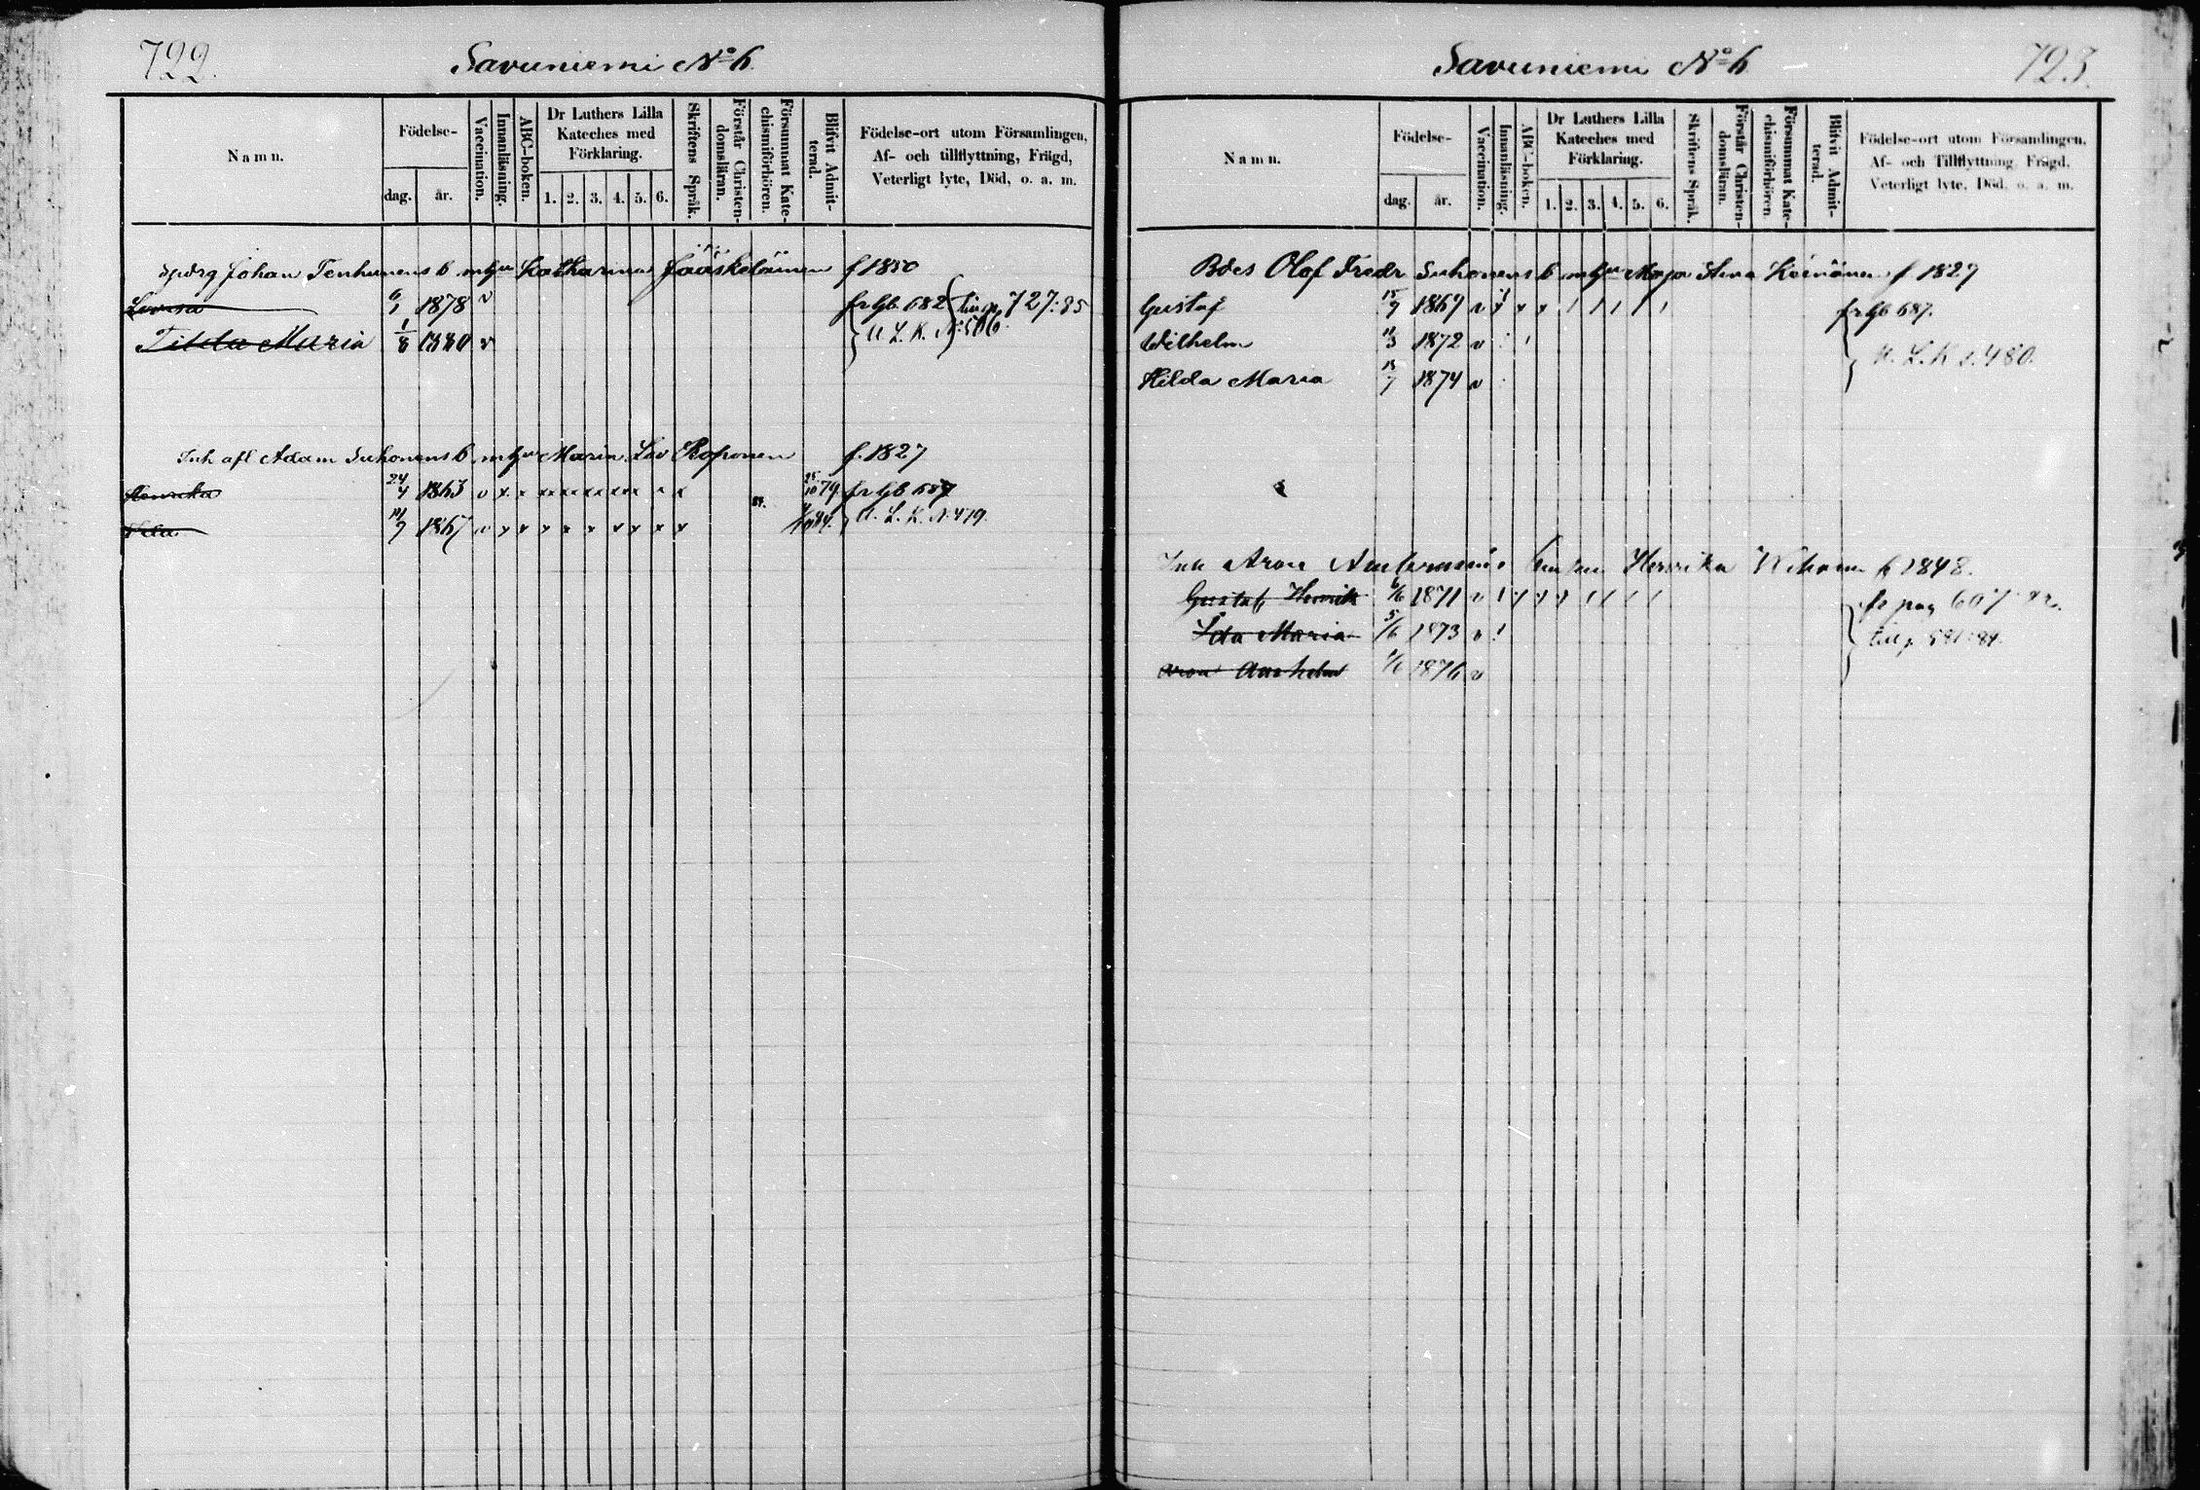 722.
Savuniemi No 6.
Namn.
Födelse-
dag.
år.
Vaccination.
Innanläsning.
ABC-boken.
Dr Luthers Lilla
Kateches med
Förklaring.
1. 2. 3. 4. 5. 6.
Skriftens Språk.
Förstår Christen-
domsläran.
Försummat Kate-
chismiförhören.
Blifvit Admit-
terad.
Födelse-ort utom Församlingen,
Af- och tillflyttning, Frägd,
Veterligt lyte, Död, o. a. m.
Johan Tenhunens b m hu Katharina Jääskeläinen f 1850
Lovisa 6/1 1878 v fr Gb 682 727:85
Tilda Maria 1/8 1880 v U. L. K. N:506.
Inh afl Adam Suhonens b m hu Maria Lov Roponen f. 1827
Henrika 24/4 1863 v x x x x x x x x x x 25/10 79. fr Gb 687
1867 v x x x x x x x x x 87. 84. U. L. K. N:479.
Savuniemi No 6
723.
Namn.
Födelse-
dag.
år.
Vaccination.
Innanläsning.
ABC-boken.
Dr Luthers Lilla
Kateches med
Förklaring.
1. 2. 3. 4. 5. 6.
Skriftens Språk.
Förstår Christen-
domsläran.
Försummat Kate-
chismiförhören.
Blifvit Admit-
terad.
Födelse-ort utom Församlingen,
Af- och Tillflyttning, Frägd,
Veterligt lyte, Död, o. a. m.
Olof Fredr Suhonens b m hu Maja Stina Keinänen f 1829
Gustaf 15/9 1869 v x x x / / / / / fr Gb 687.
Wilhelm 1872 v U. L. K. 480.
Hilda Maria 1874 v
Inh Aron Henrika f 1848.
Gustaf Henrik 6/6 1871 v fr pag 607
Ida Maria 5/6 1873 v
Aron Anshelm 1876 v